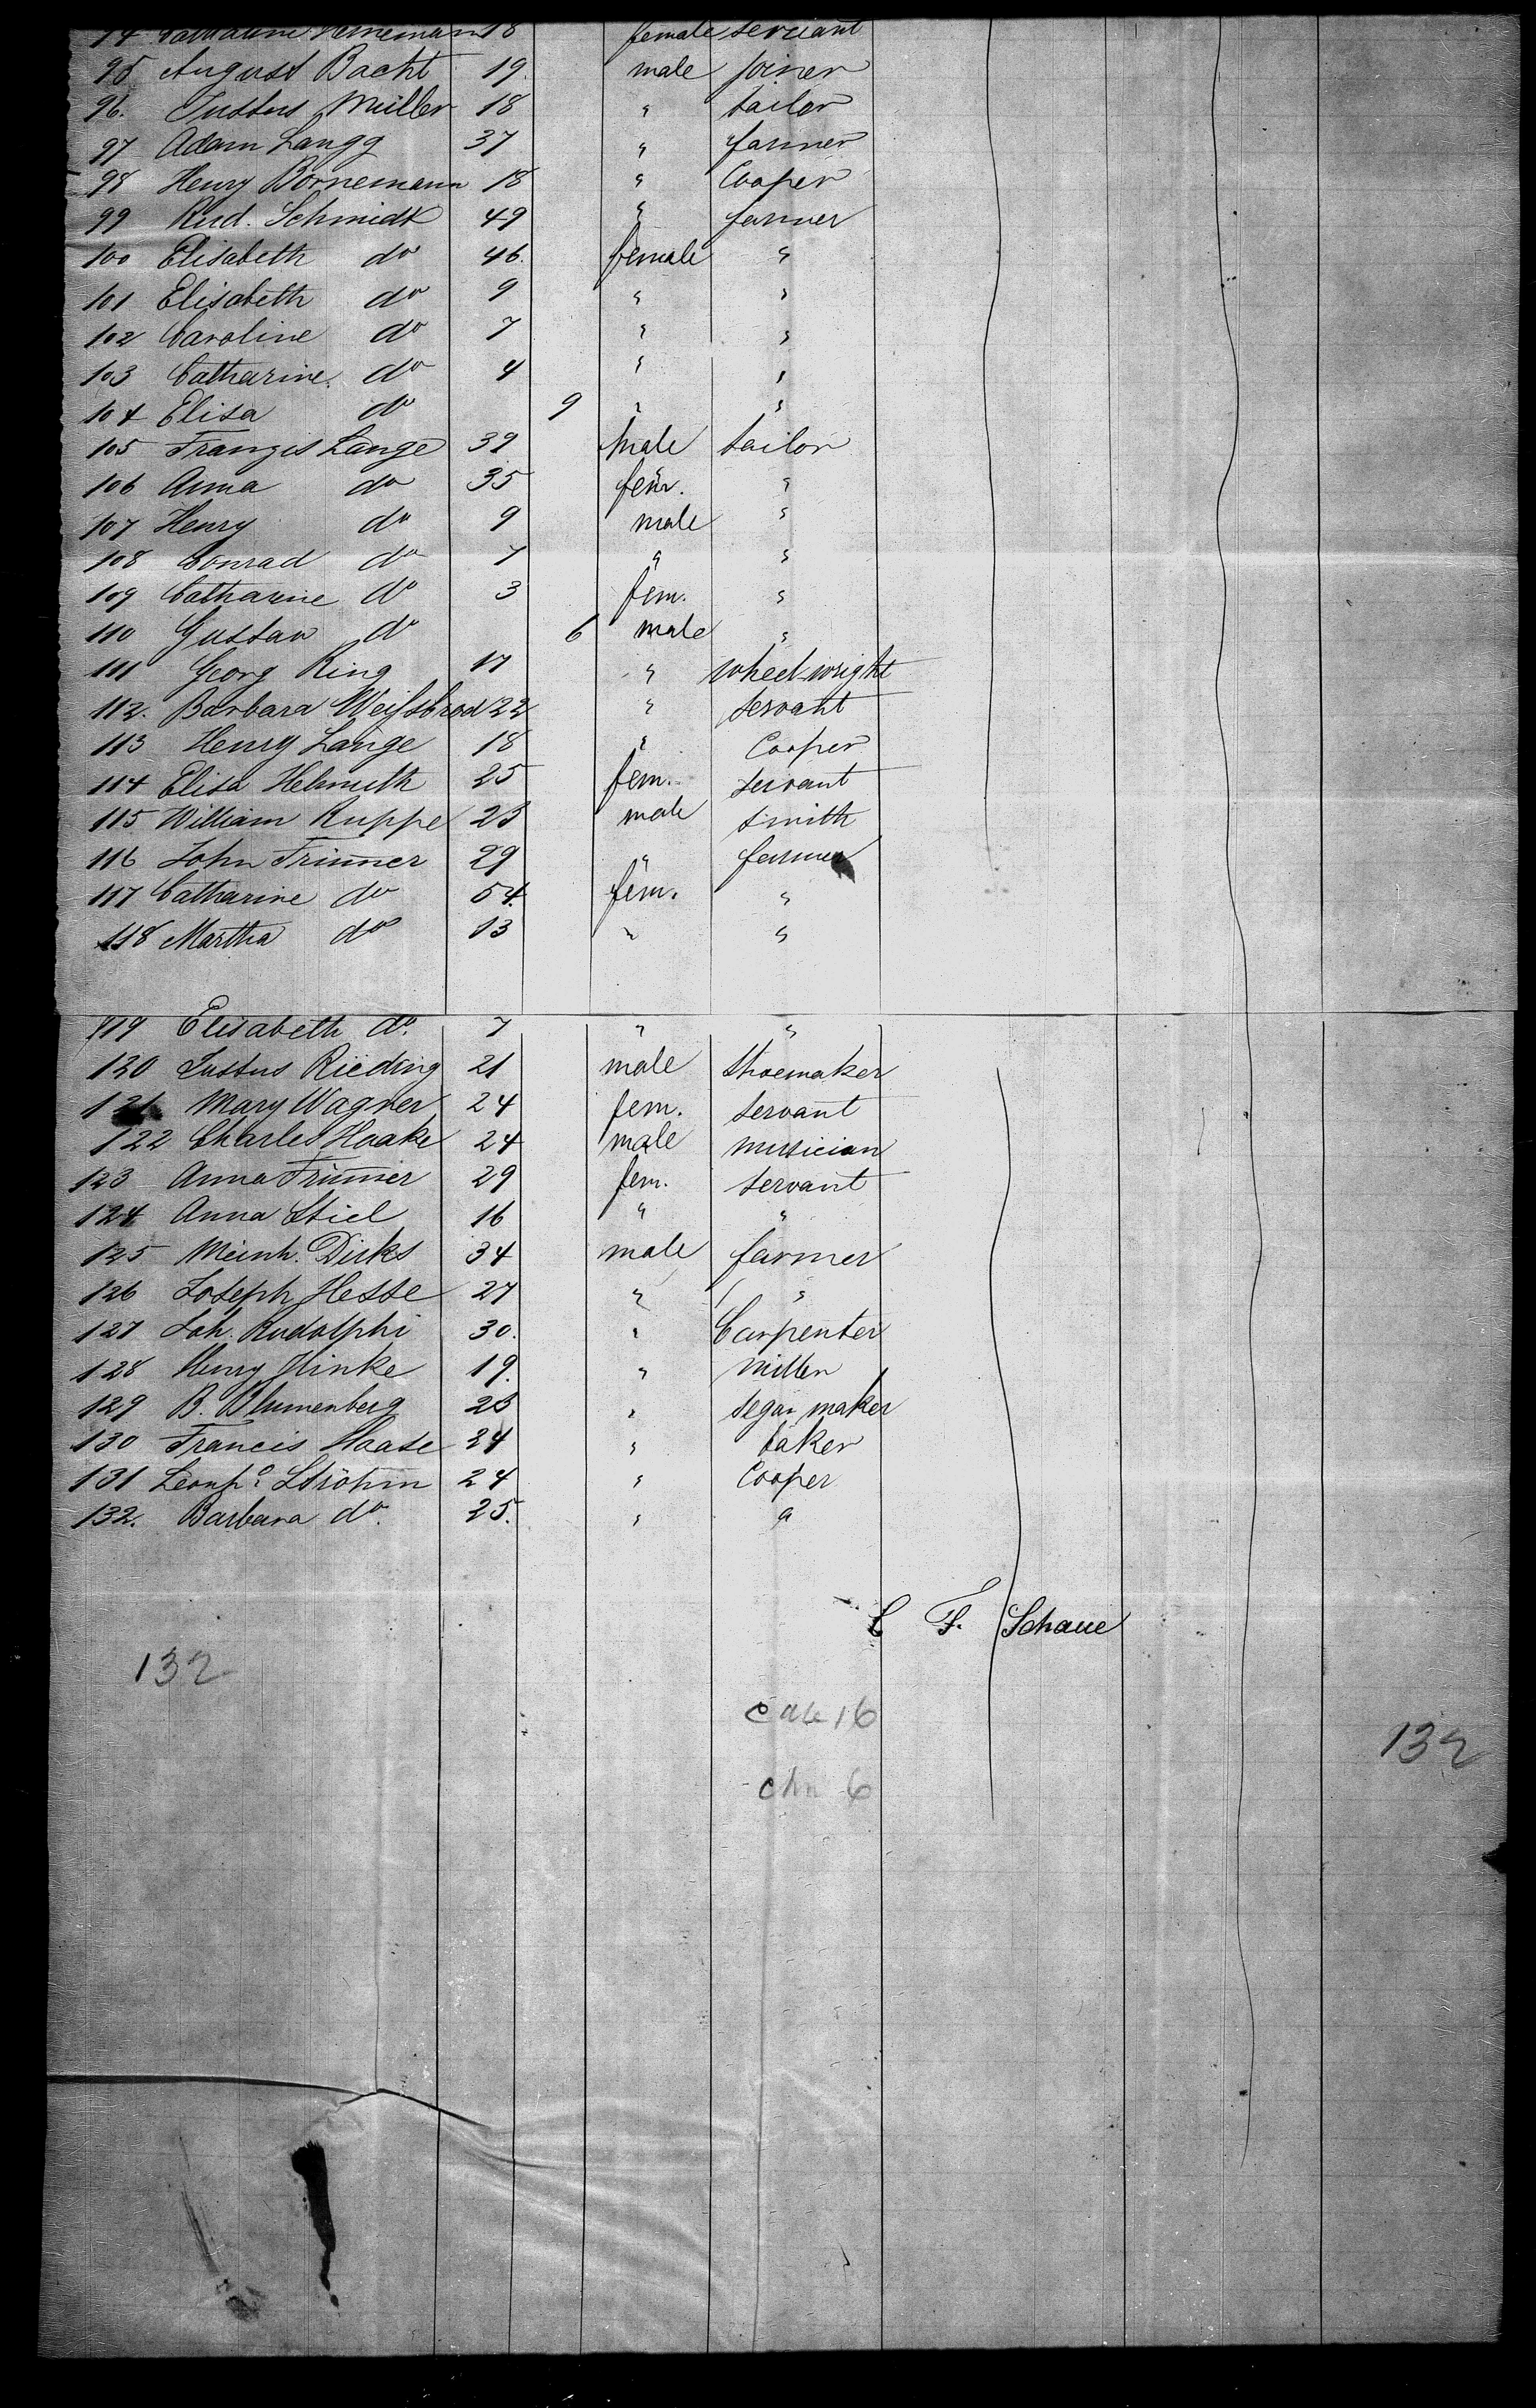 94 Catharine Heinemann 18 female servant
95 August Bacht 19. male joiner
96. Justus Müller 18 " tailor
97 Adam Langg 37 " farmer
98 Henry Bornemann 18 " Cooper
99 Rud. Schmidt 49 " farmer
100 Elisabeth do 46. female "
101 Elisabeth do 9 " "
102 Caroline do 7 " "
103 Catharine. do 4 " "
104 Elisa do 9 " "
105 Franzis Lange 39 Male tailor
106 Anna do 35 fem. "
107 Henry do 9 male "
108 Conrad do 7 " "
109 Catharine do 3 fem. "
110 Gustav do 6 male "
111 Georg Ring 17 " wheel-wright
112. Barbara Weissbrod 22 " servant
113 Henry Lange 18 " Cooper
114 Elisa Helmuth 25 fem. servant
115 William Ruppe 23 male smith
116 John Trimmer 29 " farmer
117 Catharine do 54. fem. "
118 Martha do 13 " "
119 Elisabeth do. 7 " "
120 Justus Rieding 21 male shoemaker
121 Mary Wagner 24 fem. servant
122 Charles Haake 24 male musician
123 Anna Trimmer 29 fem. servant
124 Anna Stiel 16 " "
125 Meinh. Dirks 34 male farmer
126 Joseph Hesse 27 " "
127 Joh. Rudolphi 30. " Carpenter
128 Henry Hinke 19. " miller
129 B. Blumenberg 23 " segar maker
130 Francis Haase 24 " baker
131 Leonh. Ströhm 24 " Cooper
132. Barbara do. 25. " "
C F. Schaue
132
16
132
6